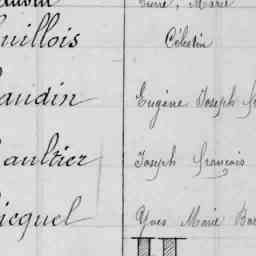 Pierre, Marie
uillois Célestin
audin Eugène Joseph
aultier Joseph François
icquel Yves Marie